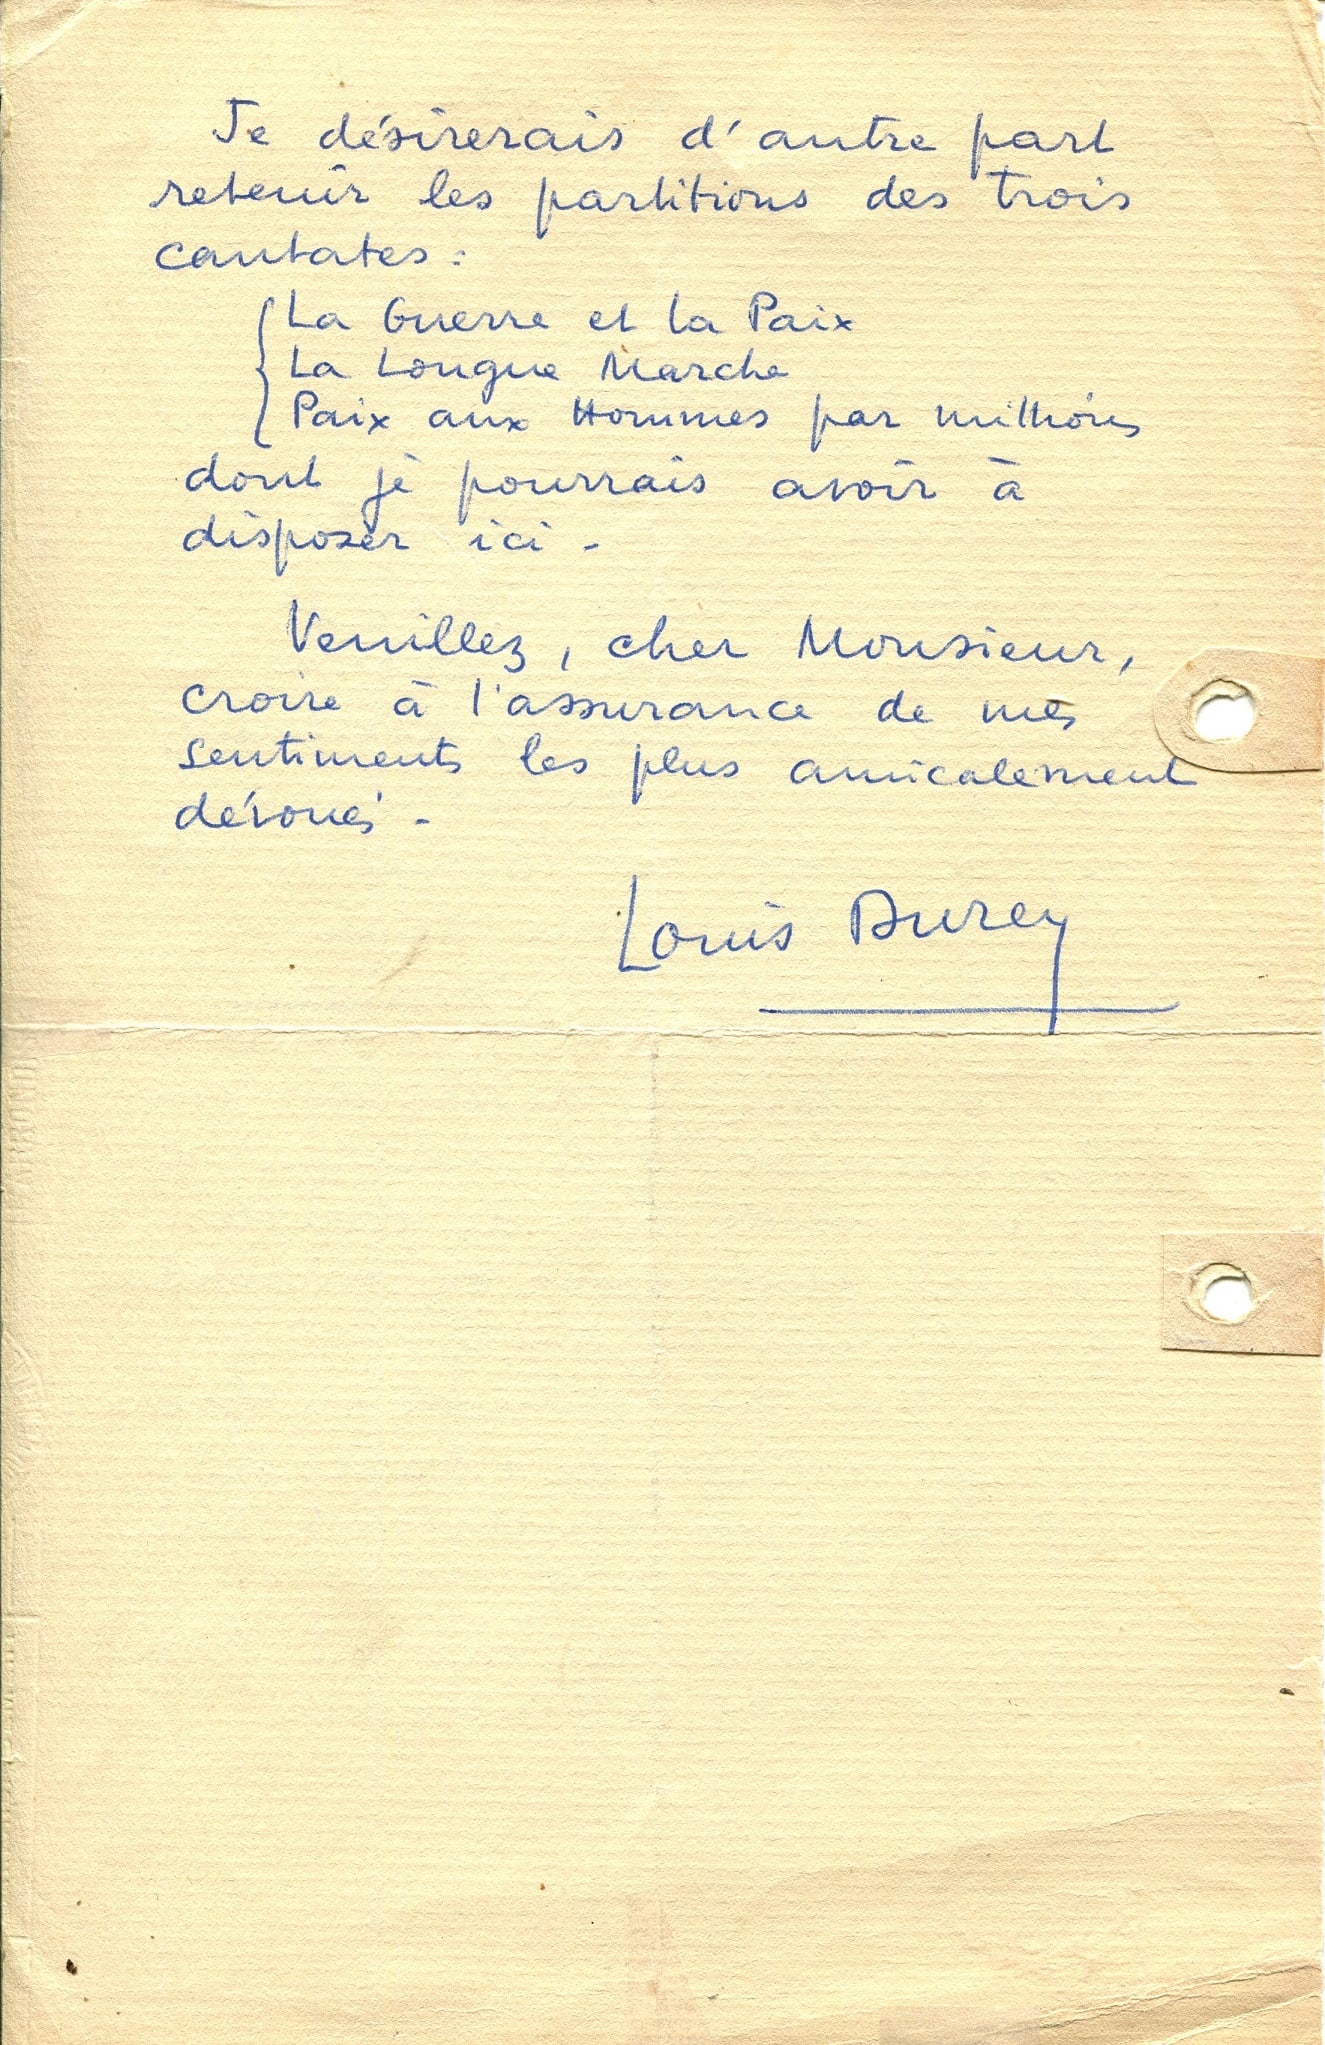 Je désirerais d'autre part
retenir les partitions des trois
cantates :
La Guerre et la Paix
La Longue Marche
Paix aux Hommes par millions
dont je pourrais avoir à
disposer ici -
Veuillez, cher Monsieur,
croire à l'assurance de mes
sentiments les plus amicalement
dévoués -
Louis Durey